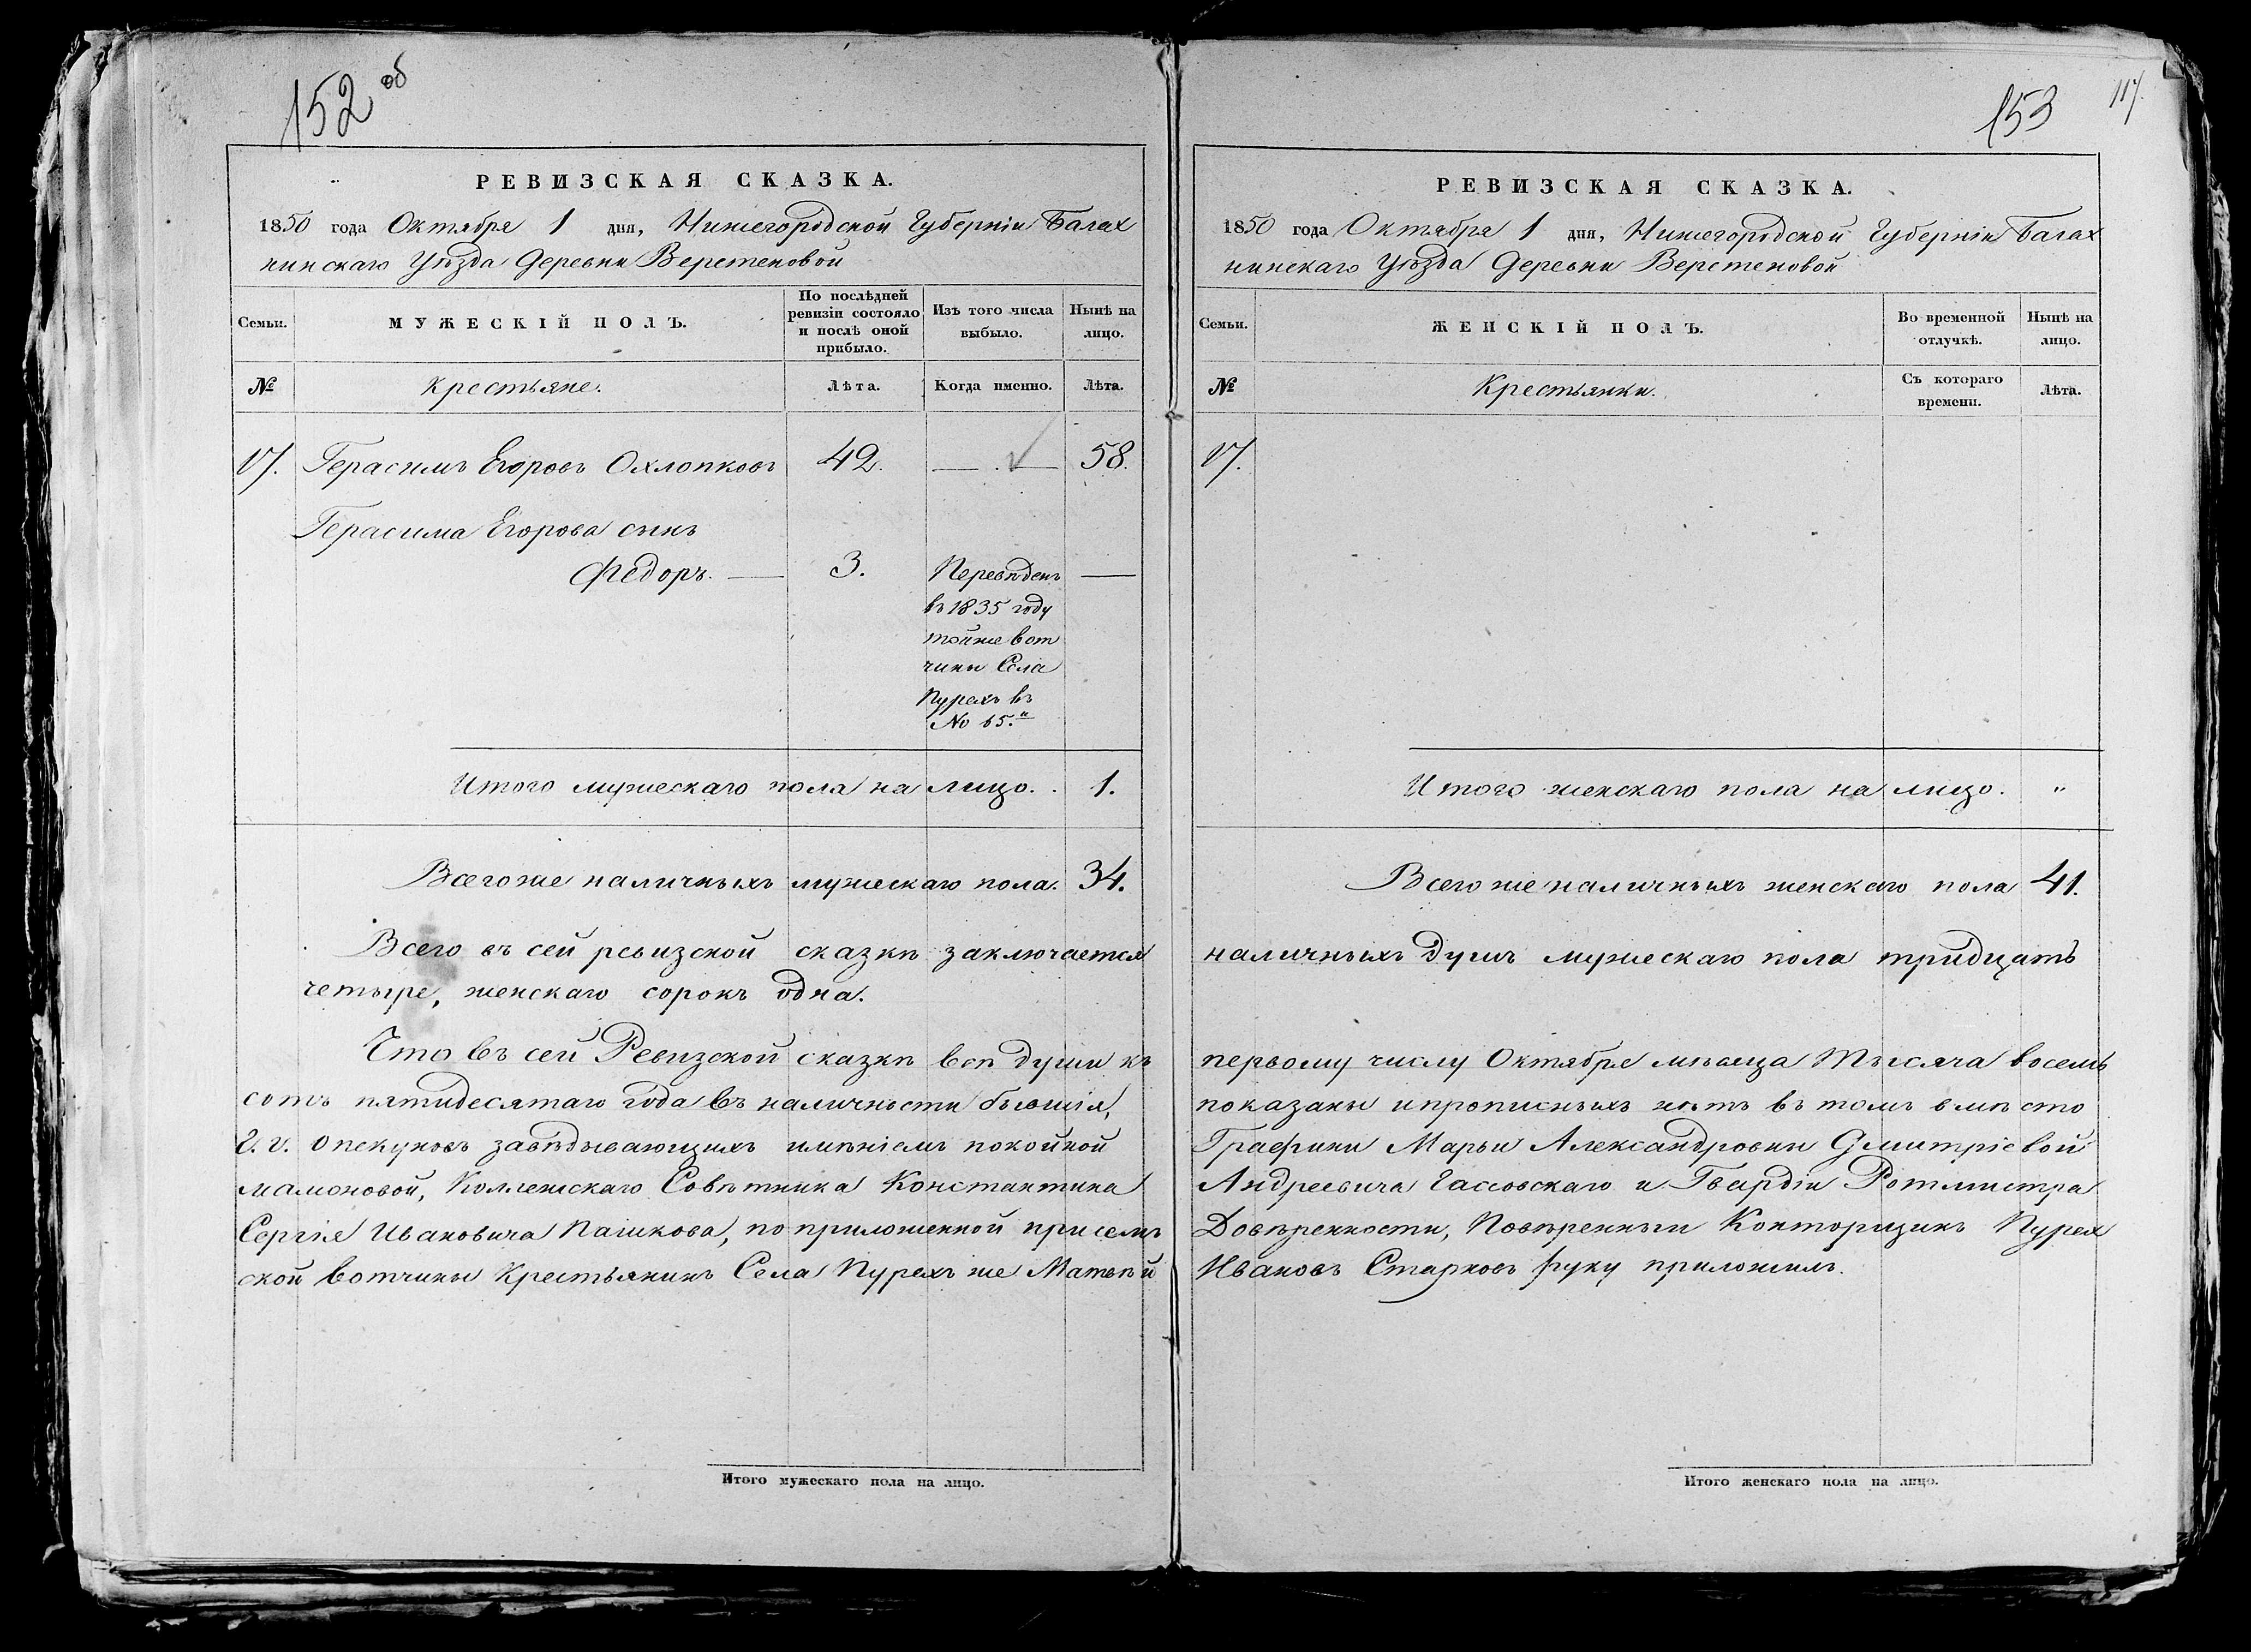 152 об
РЕВИЗСКАЯ СКАЗКА.
1850 года Октября 1 дня, Нижегородской Губерніи Балах
нинскаго Уѣзда Деревни Веретеновой
Семьи.
МУЖЕСКІЙ ПОЛЪ.
По послѣдней
ревизіи состояло
и послѣ оной
прибыло.
Изъ того числа
выбыло.
Нынѣ на
лицо.
№
Крестьяне.
Лѣта.
Когда именно.
Лѣта.
17. Герасимъ Егоровъ Охлопковъ 42. — 58.
Герасима Егорова сынъ
Федоръ. — 3. Переведенъ —
въ 1835 году
тойже вот
чины Села
Пурехъ въ
No 65.й
Итого мужескаго пола на лицо. . 1.
Всего же наличныхъ мужескаго пола. 34.
Всего въ сей ревизской сказкѣ заключается
четыре, женскаго сорокъ одна.
Что въ сей Ревизской сказкѣ всѣ души къ
сотъ пятидесятаго года въ наличности бывшія,
Г. г. Опекуновъ завѣдывающихъ имѣніемъ покойной
Мамоновой, Коллежскаго Совѣтника Константина
Сергія Ивановича Пашкова, по приложенной при семъ
ской вотчины Крестьянинъ Села Пурехъ же Матвѣй
Итого мужескаго пола на лицо.
153
117.
РЕВИЗСКАЯ СКАЗКА.
1850 года Октября 1 дня, Нижегородской Губерніи Балах
нинскаго Уѣзда Деревни Веретеновой
Семьи.
ЖЕНСКІЙ ПОЛЪ.
Во временной
отлучкѣ.
Нынѣ на
лицо.
№
Крестьянки.
Съ котораго
времени.
Лѣта.
17.
Итого женскаго пола на лицо. "
Всего же наличныхъ женскаго пола 41.
наличныхъ душъ мужескаго пола тридцать
первому числу Октября мѣсяца Тысяча восемь
показаны и прописныхъ нѣтъ въ томъ вмѣсто
Графини Марьи Александровны Дмитріевой
Андреевича Гассовскаго и Гвардіи Ротмистра
Довѣренности, Повѣренный Конторщикъ Пурех
Ивановъ Старковъ руку приложилъ.
Итого женскаго пола на лицо.